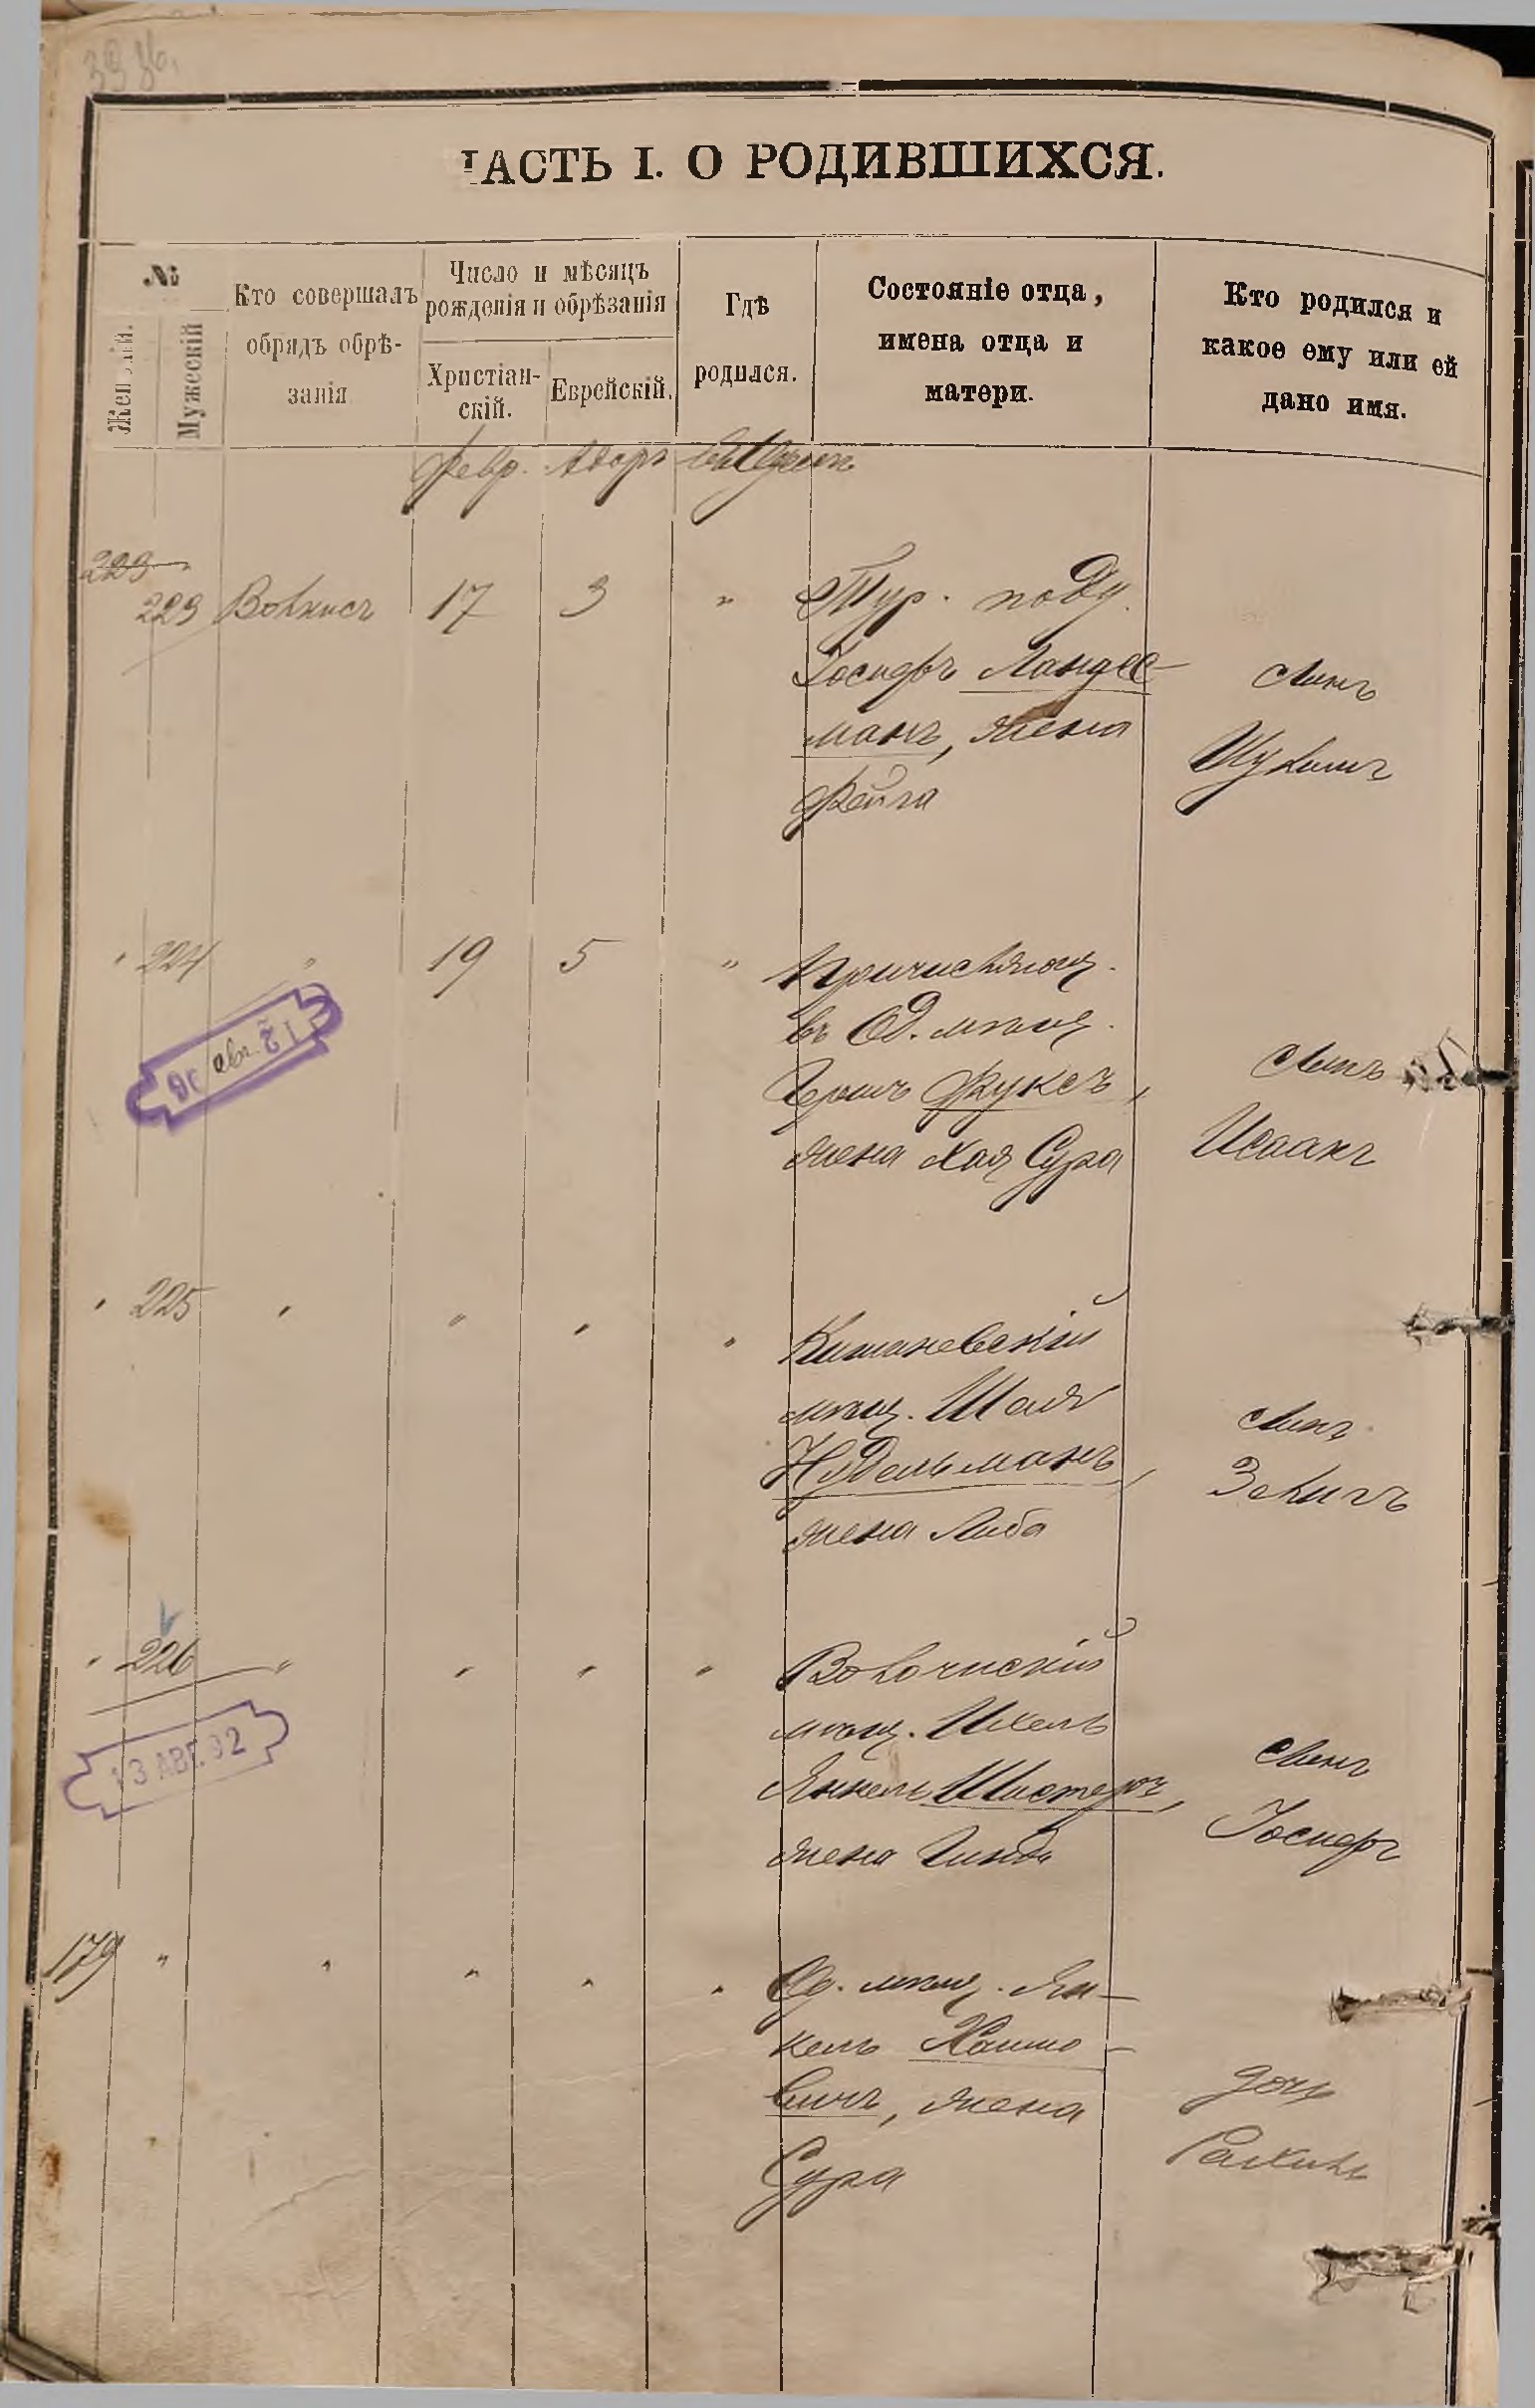 ЧАСТЬ I. О РОДИВШИХСЯ.
№
Женскій.
Мужескій
Кто совершалъ
обрядъ обрѣ-
занія
Число и мѣсяцъ
рожденія и обрѣзанія
Христіан-
скій.
Еврейскій.
Гдѣ
родился.
Состояніе отца,
имена отца и
матери.
Кто родился и
какое ему или ей
дано имя.
Февр. Адаръ
223
223 Волкисъ 17 3 " Тур. подд.
Іосифъ Ландес-
манъ, жена
Фейга
сынъ
Шулимъ
" 224 " 19 5 " Причисляющ.
въ Од. мѣщ.
Гершъ Фуксъ,
жена Хая Сура
сынъ
Исаакъ
" 225 " " " " Кишиневскій
мѣщ. Шая
Нудельманъ,
жена Либа
сынъ
Зелигъ
" 226 " " " " Волочискій
мѣщ. Ихель
Янкель Шистеръ,
жена Гинда
сынъ
Іосифъ
13 АВГ. 92
179 " " " " " Од. мѣщ. Ян-
кель Хаимо-
вичъ, жена
Сура
дочь
Рахиль